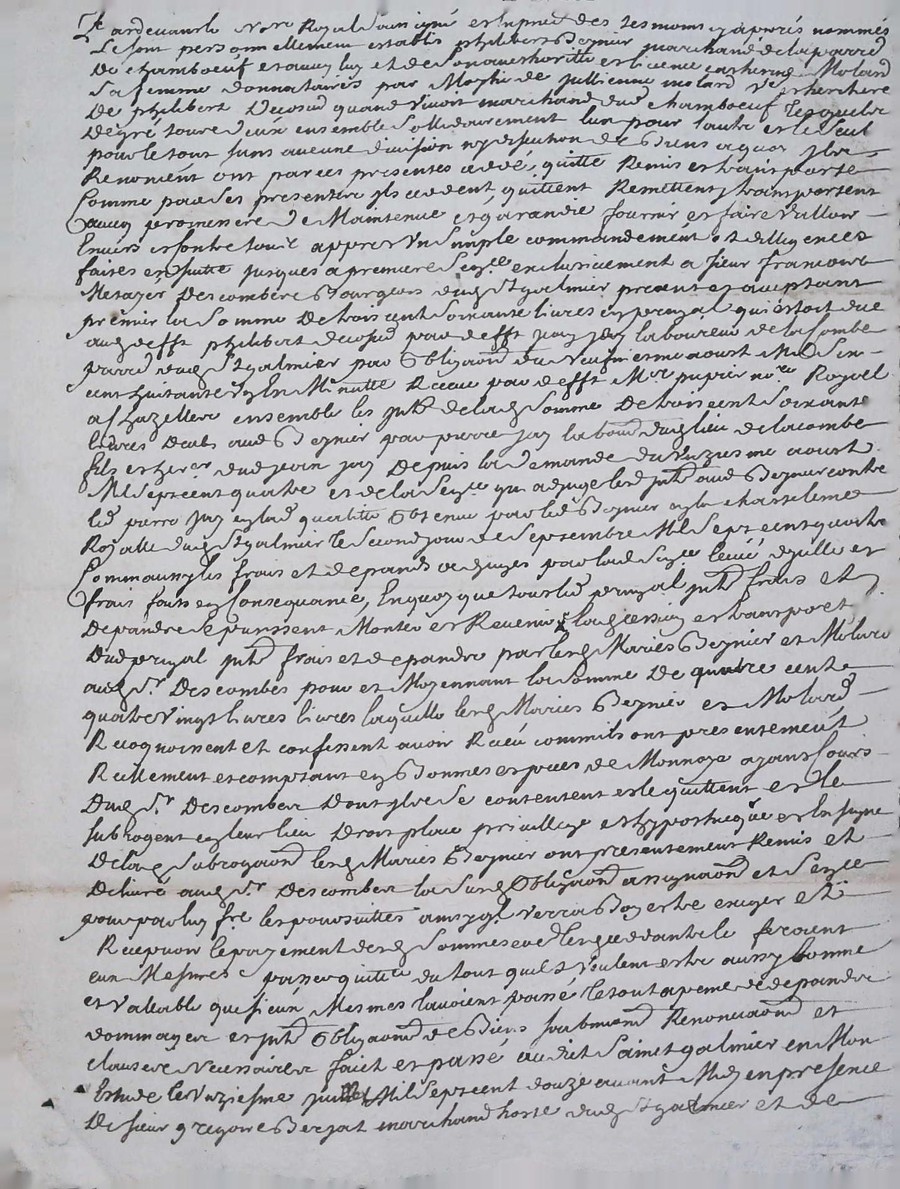 Pardevant le No.re Royal Soussigné et en pnce des tesmoins cy apprés nommés
se sont personnellement establis philibert Beynier marchand de la parroisse
De chamboeuf et avecq luy et de son authorité et licence catherine Molard
sa femme donnataires par de Jullienne molard Ve et herittiere
De philibert Decosus quand vivoit marchand dud chamboeuf lesquels
de gré tous deux ensemble sollidairement lun pour lautre et le seul
pour le tout sans aucune division ny discution de Biens a quoy ils
Renoncent ont par ces presentes cedé, quitté Remis et transporté
Comme par ces presentes ils cedent, quittent Remettent, transportent
avecq promesse de Maintenue et garandie fournir et faire valloir
Envers et contre tous appres un simple commandement et dilligences
faites en suitte jusques a premiere Sen.ce exclusivement a sieur francois
Metayer Descombes Bourgeois dud St galmier present et acceptant
premier la somme De trois cent soixante livres en prinpal qui estoit due
aud defft philibert decosus par defft jean jay laboureur de la combe
parr.e dud St galmier par Obligaon du neufviesme aoust Mil six
cent huitante un En Minutte Receue par defft M.e pupier no.re Royal
a Chazelles ensemble les de lad somme De trois cent soixante
livres deubs aud Beynier par pierre jay labour dud lieu de lacombe
fils et her.er dud jean jay Depuis la Demande du unziesme aoust
Mil sept cent quatre et de la Sen.ce qui adjuge lesd aud Beynier contre
led pierre jay en lad quallitté Obtenue par led Beynier en la chastelenie
Royalle dud St galmier le second jour de septembre Mil sept cent quatre
Comme aussy les frais et depands adjugés par lad Sen.ce levée d'ycelle et
frais faits en Consequance, En quoy que tous led prinpal frais et
depands se puissent Monter et Revenir, la cession et transport
Dud prinpal frais et depands par lesd Mariés Beynier et Molard
aud Sr Descombes pour et Moyennant la somme De quatre cents
quatre vingt livres livres laquelle lesd Mariés Beynier et Molard
Recognoissent et confessent avoir Receu comme ils ont presentement
Reellement et comptant en Bonnes especes de Monnoye ayant Cours
Dud Sr Descombes Dont ils se contentent et le quittent et le
subrogent en leur lieu Droit place privillege et hypotecque et en signe
De lad subrogaon lesd Mariés Beynier ont presentement Remis et
Delivré aud Sr Descombes la susd Obligaon assignaon et Sen.ce
pour par luy f.re les poursuittes ainsy qil verra Bon estre exiger et
Recepvoir le payement desd sommes cedées tout ainsy que lesd ceddants le feroient
eux Mesmes passer quitte du tout quils veulent estre aussy bonne
et Vallable que si eux Mesmes lavoient passé le tout a peine de depands
dommages et Obligaon de Biens soubmions Renonciaons et
clauses Necessaires fait et passé audit saint galmier en Mon
Estude le unziesme juillet Mil sept cent douze avant Midy en presence
De sieur gregoire Berjat marchand hoste dud St galmier et de